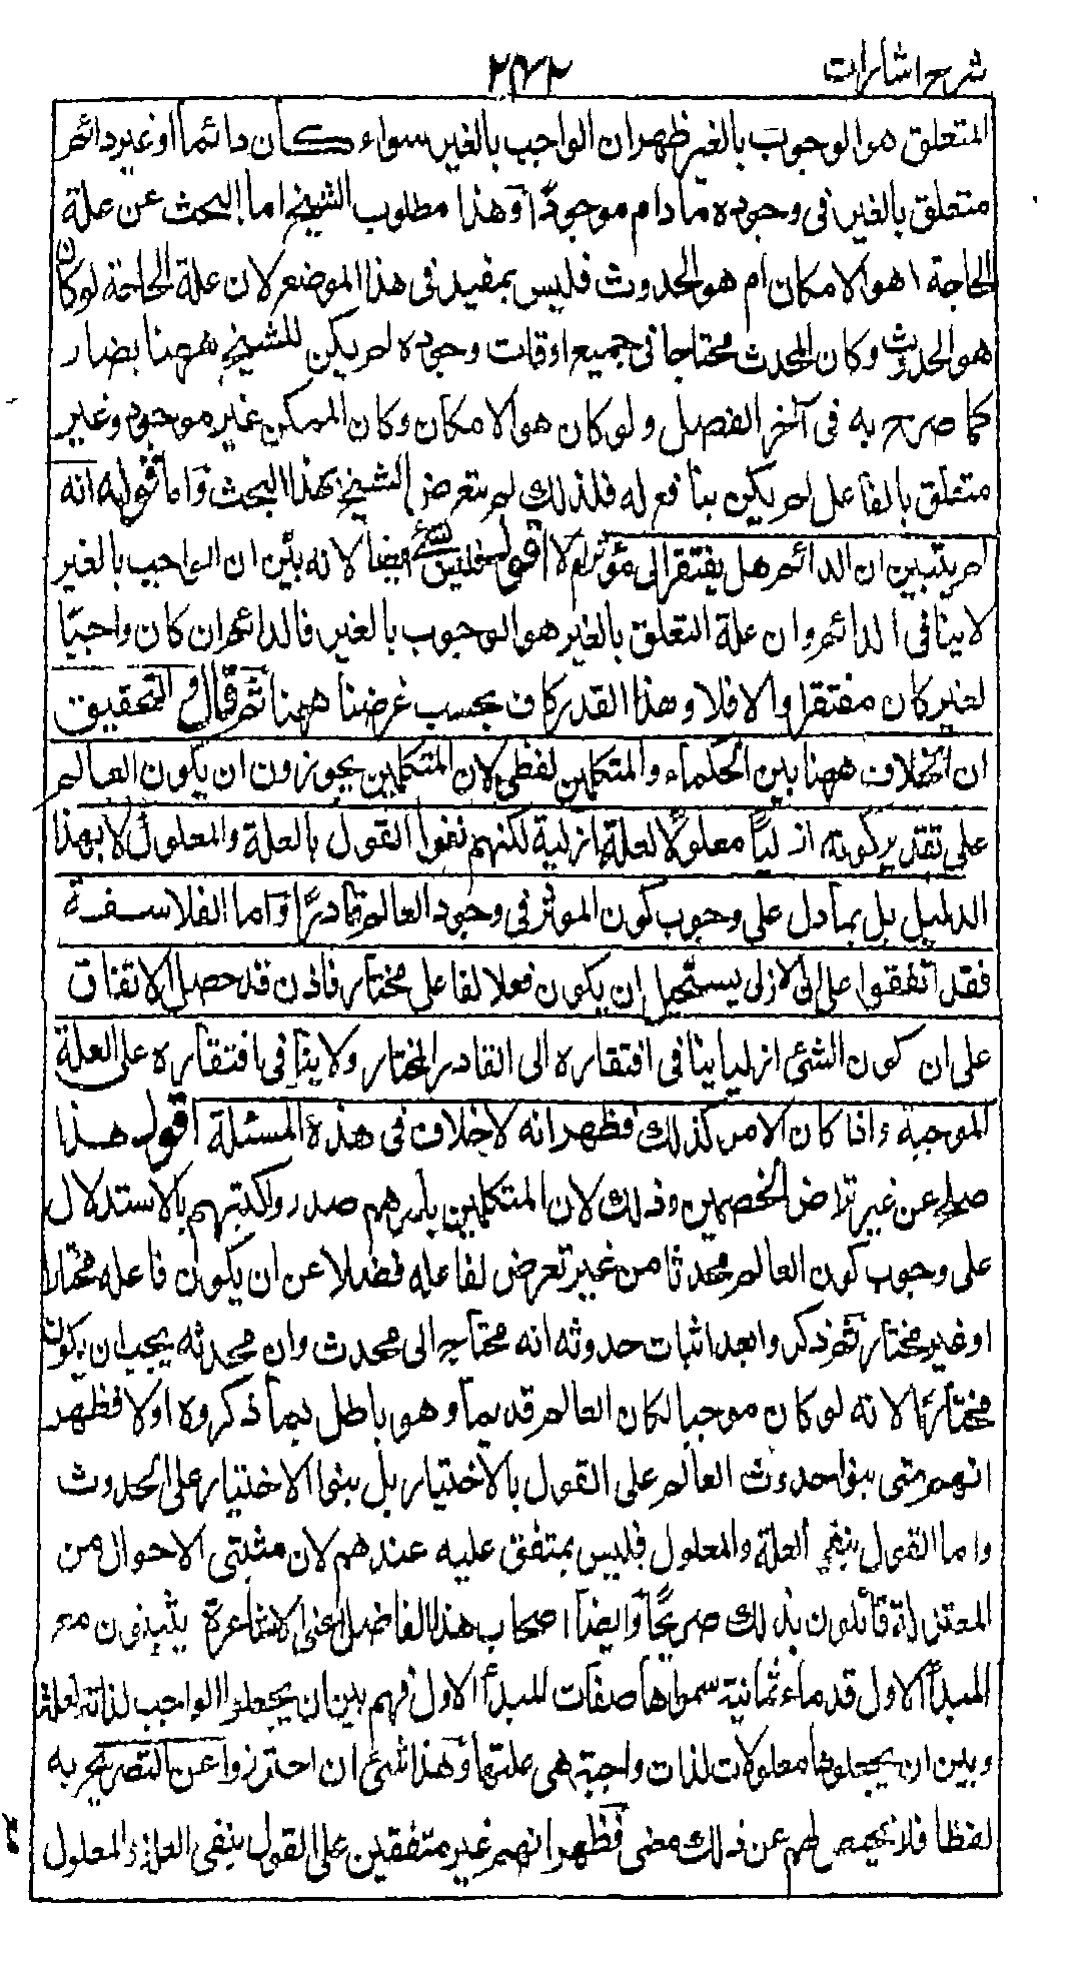 شرح اشارات
٢٧٢
المتعلق هو الوجوب بالغير ظهر ان الواجب بالغير سواء كان دائما او غير دائم
متعلق بالغير فى وجوده ما دام موجودًا وهذا مطلوب الشيخ اما البحث عن علة
الحاجة اهو الامكان ام هو الحدوث فليس بمفيد فى هذا الموضع لان علة الحاجة لو كان
هو الحدوث وكان المحدث محتاجا فى جميع اوقات وجوده لم يكن للشيخ ههنا بضار
كما صرح به فى آخر الفصل ولو كان هو الامكان وكان الممكن غير موجود وغير
متعلق بالفاعل لم يكن بنافع له فلذلك لم يتعرض الشيخ لهذا البحث واما قوله انه
لم يتبين ان الدائم هل يفتقر الى مؤثر ام لا اقول فليس بشئ ايضا لانه بيّن ان الواجب بالغير
لا ينافى الدائم وان علة التعلق بالغير هو الوجوب بالغير فالدائم ان كان واجبًا
لغيره كان مفتقرا والا فلا وهذا القدر كاف بحسب غرضنا ههنا ثم قال والتحقيق
ان الخلاف ههنا بين الحكماء والمتكلمين لفظى لان المتكلمين يجوزون ان يكون العالم
على تقدير كونه ازليًا معلولا لعلة ازلية لكنهم نفوا القول بالعلة والمعلول لا بهذا
الدليل بل بما دل على وجوب كون الموثر فى وجود العالم قادرًا واما الفلاسفة
فقد اتفقوا على ان الازلى يستحيل ان يكون فعلا لفاعل مختار فاذن قد حصل الاتفاق
على ان كون الشئ ازليا ينافى افتقاره الى القادر المختار ولا ينافى افتقاره على العلة
الموجبة واذا كان الامر كذلك فظهر انه لا خلاف فى هذه المسئلة اقول هذا
صلح عن غير تراض الخصمين وذلك لان المتكلمين باسرهم صدروا كتبهم بالاستدلال
على وجوب كون العالم محدثا من غير تعرض لفاعله فضلا عن ان يكون فاعله مختارا
او غير مختار ثم ذكروا بعد اثبات حدوثه انه محتاج الى محدث وان محدثه يجب ان يكون
مختارًا لانه لو كان موجبا لكان العالم قديما وهو باطل بما ذكروه اولا فظهر
انهم متى بنوا حدوث العالم على القول بالاختيار بل بنوا الاختيار على الحدوث
واما القول بنفى العلة والمعلول فليس بمتفق عليه عندهم لان مثبتى الاحوال من
المعتزلة قائلون بذلك صريحًا وايضا اصحاب هذا الفاضل اعنى الاشاعرة يثبتون مع
المبدأ الاول قدماء ثمانية سموها صفات للمبدأ الاول فهم بين ان يجعلوا الواجب لذاته لعلة
وبين ان يجعلوها معلولات لذات واجبة هى علتها وهذا شئ ان احترزوا عن التصريح به
لفظا فلا محيص لهم عن ذلك معنى فظهر انهم غير متفقين على القول بنفى العلة والمعلول